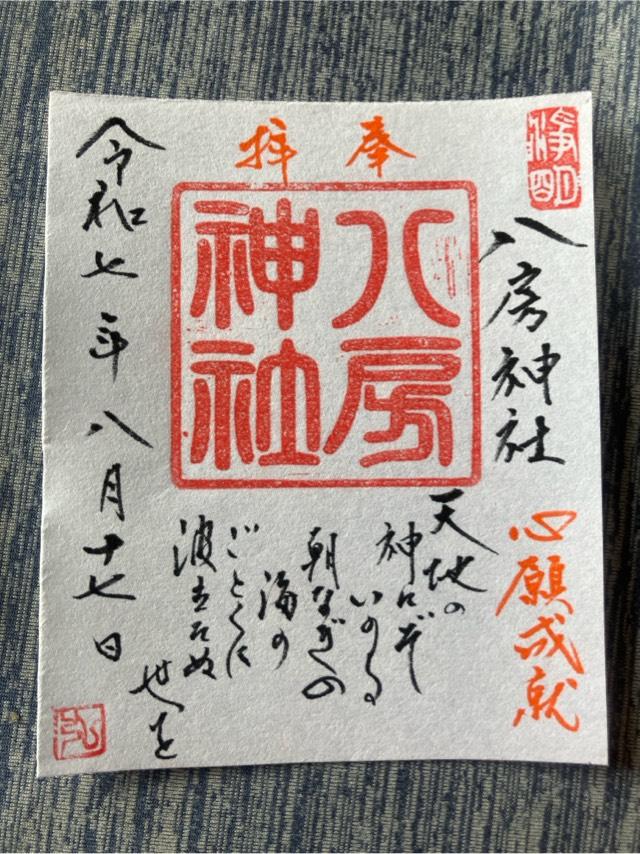 奉拝
浄明
八房神社
八房神社
心願成就
天地の
神にぞ
いのる
朝なぎの
海の
ごとくに
波立たぬ
世を
令和七年八月十七日